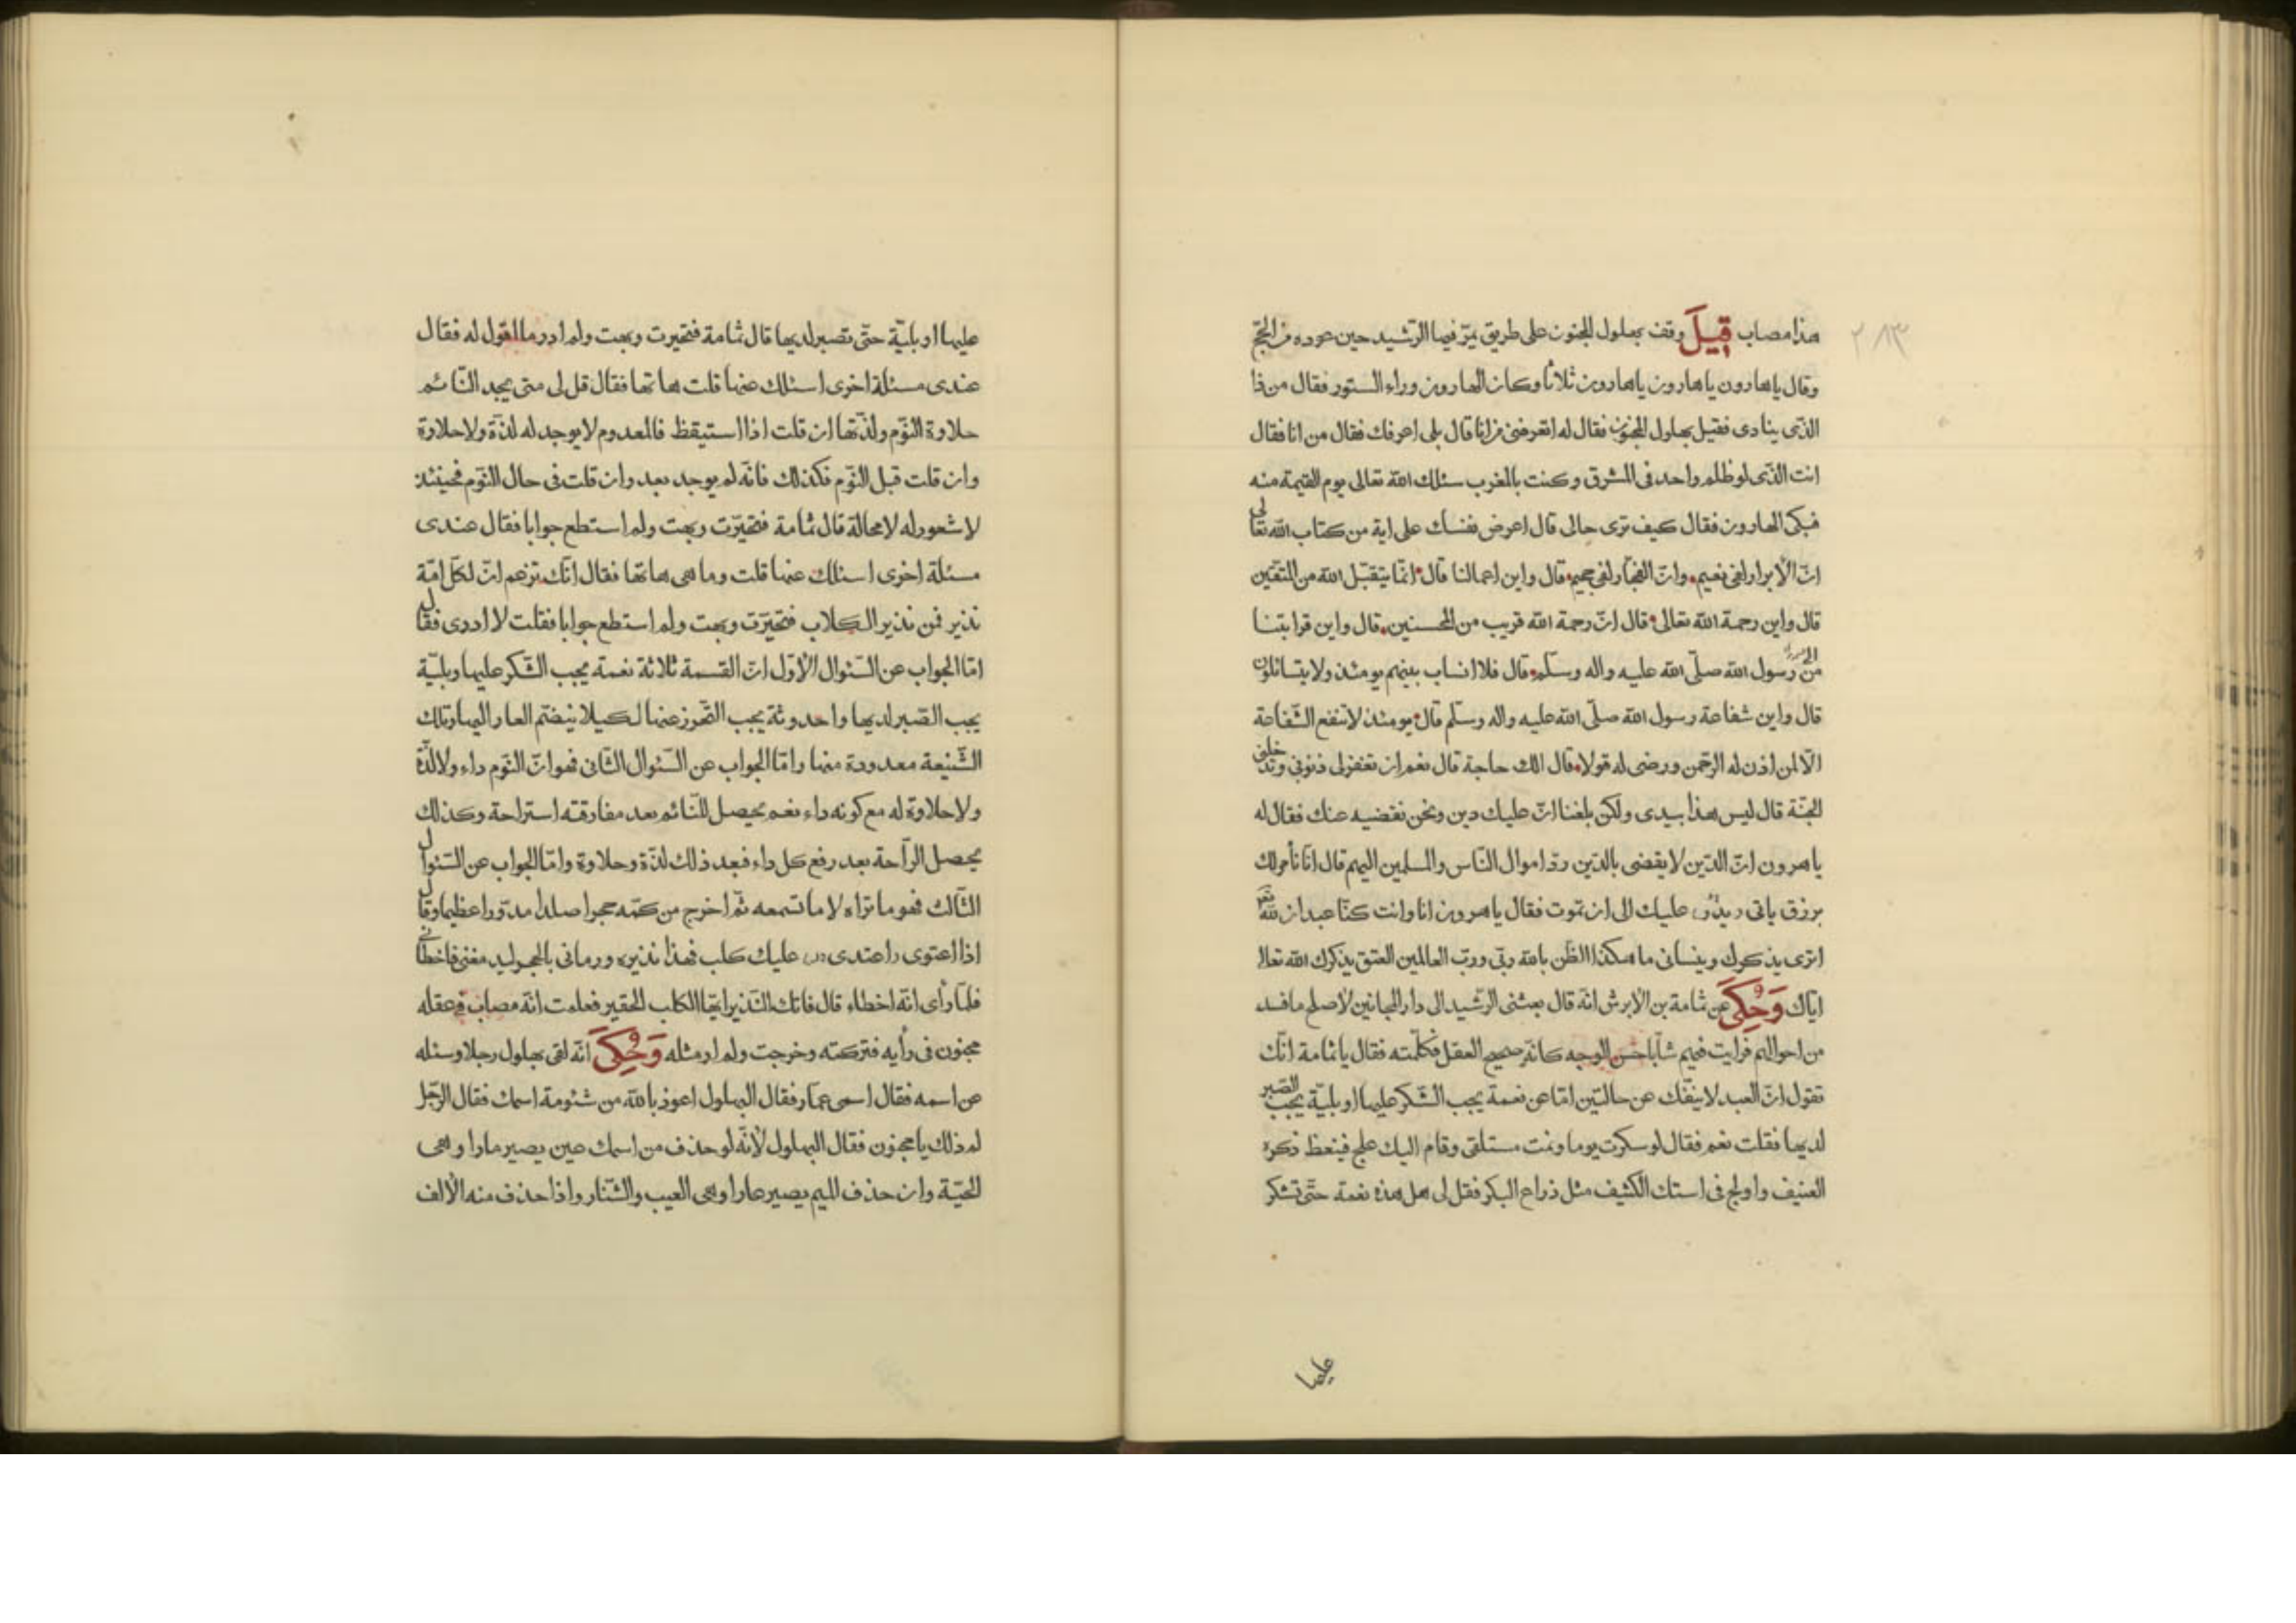 هذا مصاب قِيلَ وقف بهلول المجنون على طريق يمرّ فيها الرّشيد حين عوده من الحجّ
٢٨٣
وقال يا هارون يا هارون يا هارون ثلاثا وكان الهارون وراء الستور فقال من ذا
الذّى ينادى فقيل بهلول المجنون فقال له اتعرفنى من انا قال بلى اعرفك فقال من انا فقال
انت الذّى لو ظلم واحد فى المشرق وكنت بالمغرب سئلك الله تعالى يوم القيمة منه
فبكى الهارون فقال كيف ترى حالى قال اعرض نفسك على اية من كتاب الله تعالى
انّ الأبرار لفى نعيم وانّ الفجّار لفى جحيم قال واين اعمالنا قال انّما يتقبّل الله من المتّقين
قال واين رحمة الله تعالى قال انّ رحمة الله قريب من المحسنين قال واين قرابتنا
من رسول الله صلّى الله عليه واله وسلّم قال فلا انساب بينهم يومئذ ولا يتسائلون
قال واين شفاعة رسول الله صلّى الله عليه واله وسلّم قال يومئذ لا تنفع الشّفاعة
الّا لمن اذن له الرّحمن ورضى له قولا قال الك حاجة قال نعم ان تغفر لى ذنوبى وتدخلنى
الجنّة قال ليس هذا بيدى ولكن بلغنا انّ عليك دين ونحن نقضيه عنك فقال له
يا هرون انّ الدّين لا يقضى بالدّين ردّ اموال النّاس والمسلمين اليهم قال انا نأمر لك
برزق ياتى عليك الى ان تموت فقال يا هرون انا وانت كنّا عبدان لله
اترى يذكرك وينسانى ما هكذا الظّن بالله ربّى وربّ العالمين يذكرك الله تعالى
ايّاك وَحُكِىَ عن ثمامة بن الأبرش انّه قال بعثنى الرّشيد الى دار المجانين لأصلح ما فسد
من احوالهم فرايت فيهم شابّا حسن الوجه كانّه صحيح العقل فكلّمته فقال يا ثمامة انّك
تقول انّ العبد لا ينفّك عن حالتين امّا عن نعمة يجب الشّكر عليها او بليّة يجب الصّبر
لديها فقلت نعم فقال لو سكرت يوما ونمت مستلقى وقام اليك علج فينعظ ذكره
العنيف واولج فى استك الكثيف مثل ذراع البكر فقل لى هل هذه نعمة حتّى تشكر
عليها
عليها او بليّة حتّى تصبر لديها قال ثمامة فتحيرت وبهت ولم ادر ما اقول له فقال
عندى مسئلة اخرى اسئلك عنها قلت هاتها فقال قل لى متى يجد النّائم
حلاوة النّوم ولذّتها ان قلت اذا استيقظ فالمعدوم لا يوجد له لذّة ولا حلاوة
وان قلت قبل النّوم فكذلك فانّه لم يوجد بعد وان قلت فى حال النّوم فحينئذ
لا شعور له لا محالة قال ثمامة فتحيّرت وبهت ولم استطع جوابا فقال عندى
مسئلة اخرى اسئلك عنها قلت وما هى هاتها فقال انّك تزعم انّ لكلّ امّة
نذير فمن نذير الكلاب فتحيّرت وبهت ولم استطع جوابا فقلت لا ادرى فقال
امّا الجواب عن السّئوال الأوّل انّ القسمة ثلاثة نعمة يجب الشّكر عليها وبليّة
يجب الصّبر لديها واحدوثة يجب التّحرز عنها لكيلا ينضّم العار اليها وتلك
الشّنيعة معدودة منها وامّا الجواب عن السّئوال الثّانى فهو انّ النّوم داء ولا لذّة
ولا حلاوة له مع كونه داء نعم يحصل للنّائم بعد مفارقته استراحة وكذلك
يحصل الرّاحة بعد رفع كل داء فبعد ذلك لذّة وحلاوة وامّا الجواب عن السّئوال
الثّالث فهو ما تراه لا ما تسمعه ثمّ اخرج من كمّه حجرا صلدا مدوّرا عظيما وقال
اذا اعتوى عليك كلب فهذا نذيره ورمانى بالحجر فاخطانى
فلمّا رأى انّه اخطاء قال فاتك النّذير ايّها الكلب الحقير فعلمت انّه مصاب فى عقله
مجنون فى رأيه فتركته وخرجت ولم ار مثله وَحُكِىَ انّه لقى بهلول رجلا وسئله
عن اسمه فقال اسمى عمّار فقال البهلول اعوذ بالله من شئومة اسمك فقال الرّجل
لم ذلك يا مجنون فقال البهلول لأنّه لو حذف من اسمك عين يصير مارا وهى
الحيّة وان حذف الميم يصير عارا وهى العيب والشّنار واذا حذف منه الألف